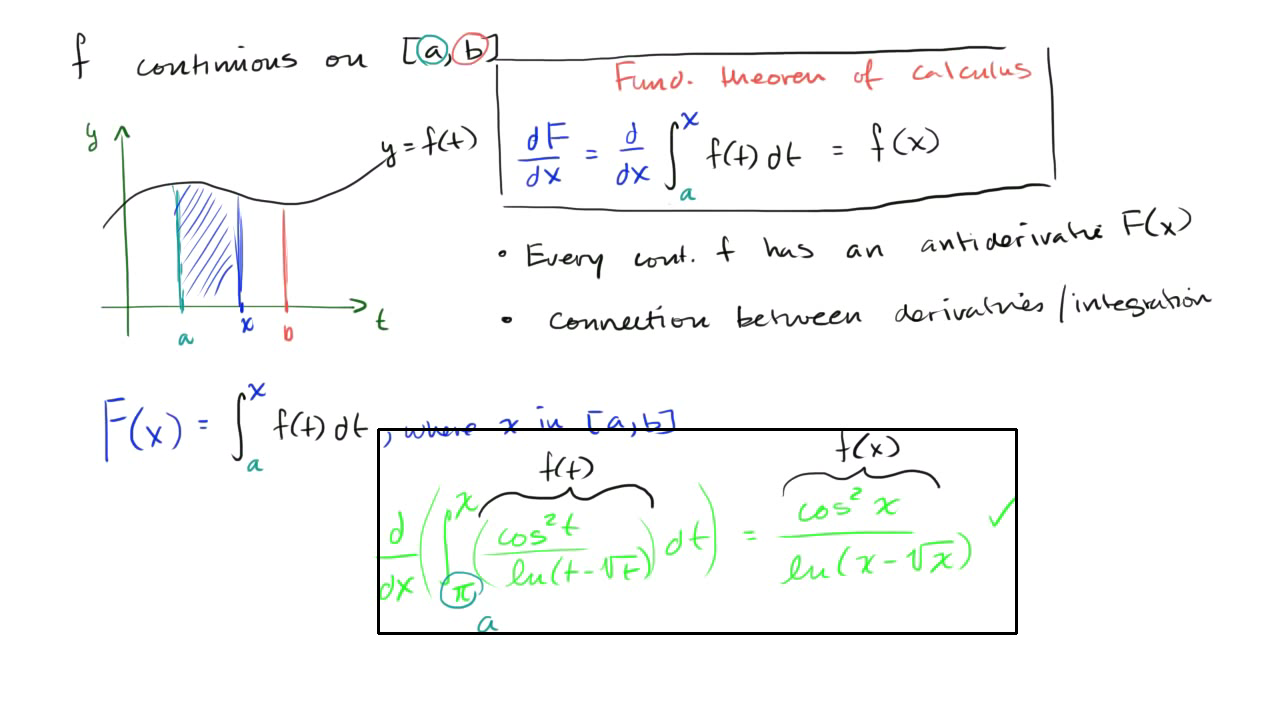 f continuous on [a, b]
Fund. theorem of calculus
dF/dx = d/dx ∫_a^x f(t) dt = f(x)
y
y = f(t)
a x b t
• Every cont. f has an antiderivative F(x)
• connection between derivatives/integration
F(x) = ∫_a^x f(t) dt, where x in [a,b]
f(t) f(x)
d/dx (∫_π^x (cos²t / ln(t-√t)) dt) = cos²x / ln(x-√x) ✓
a